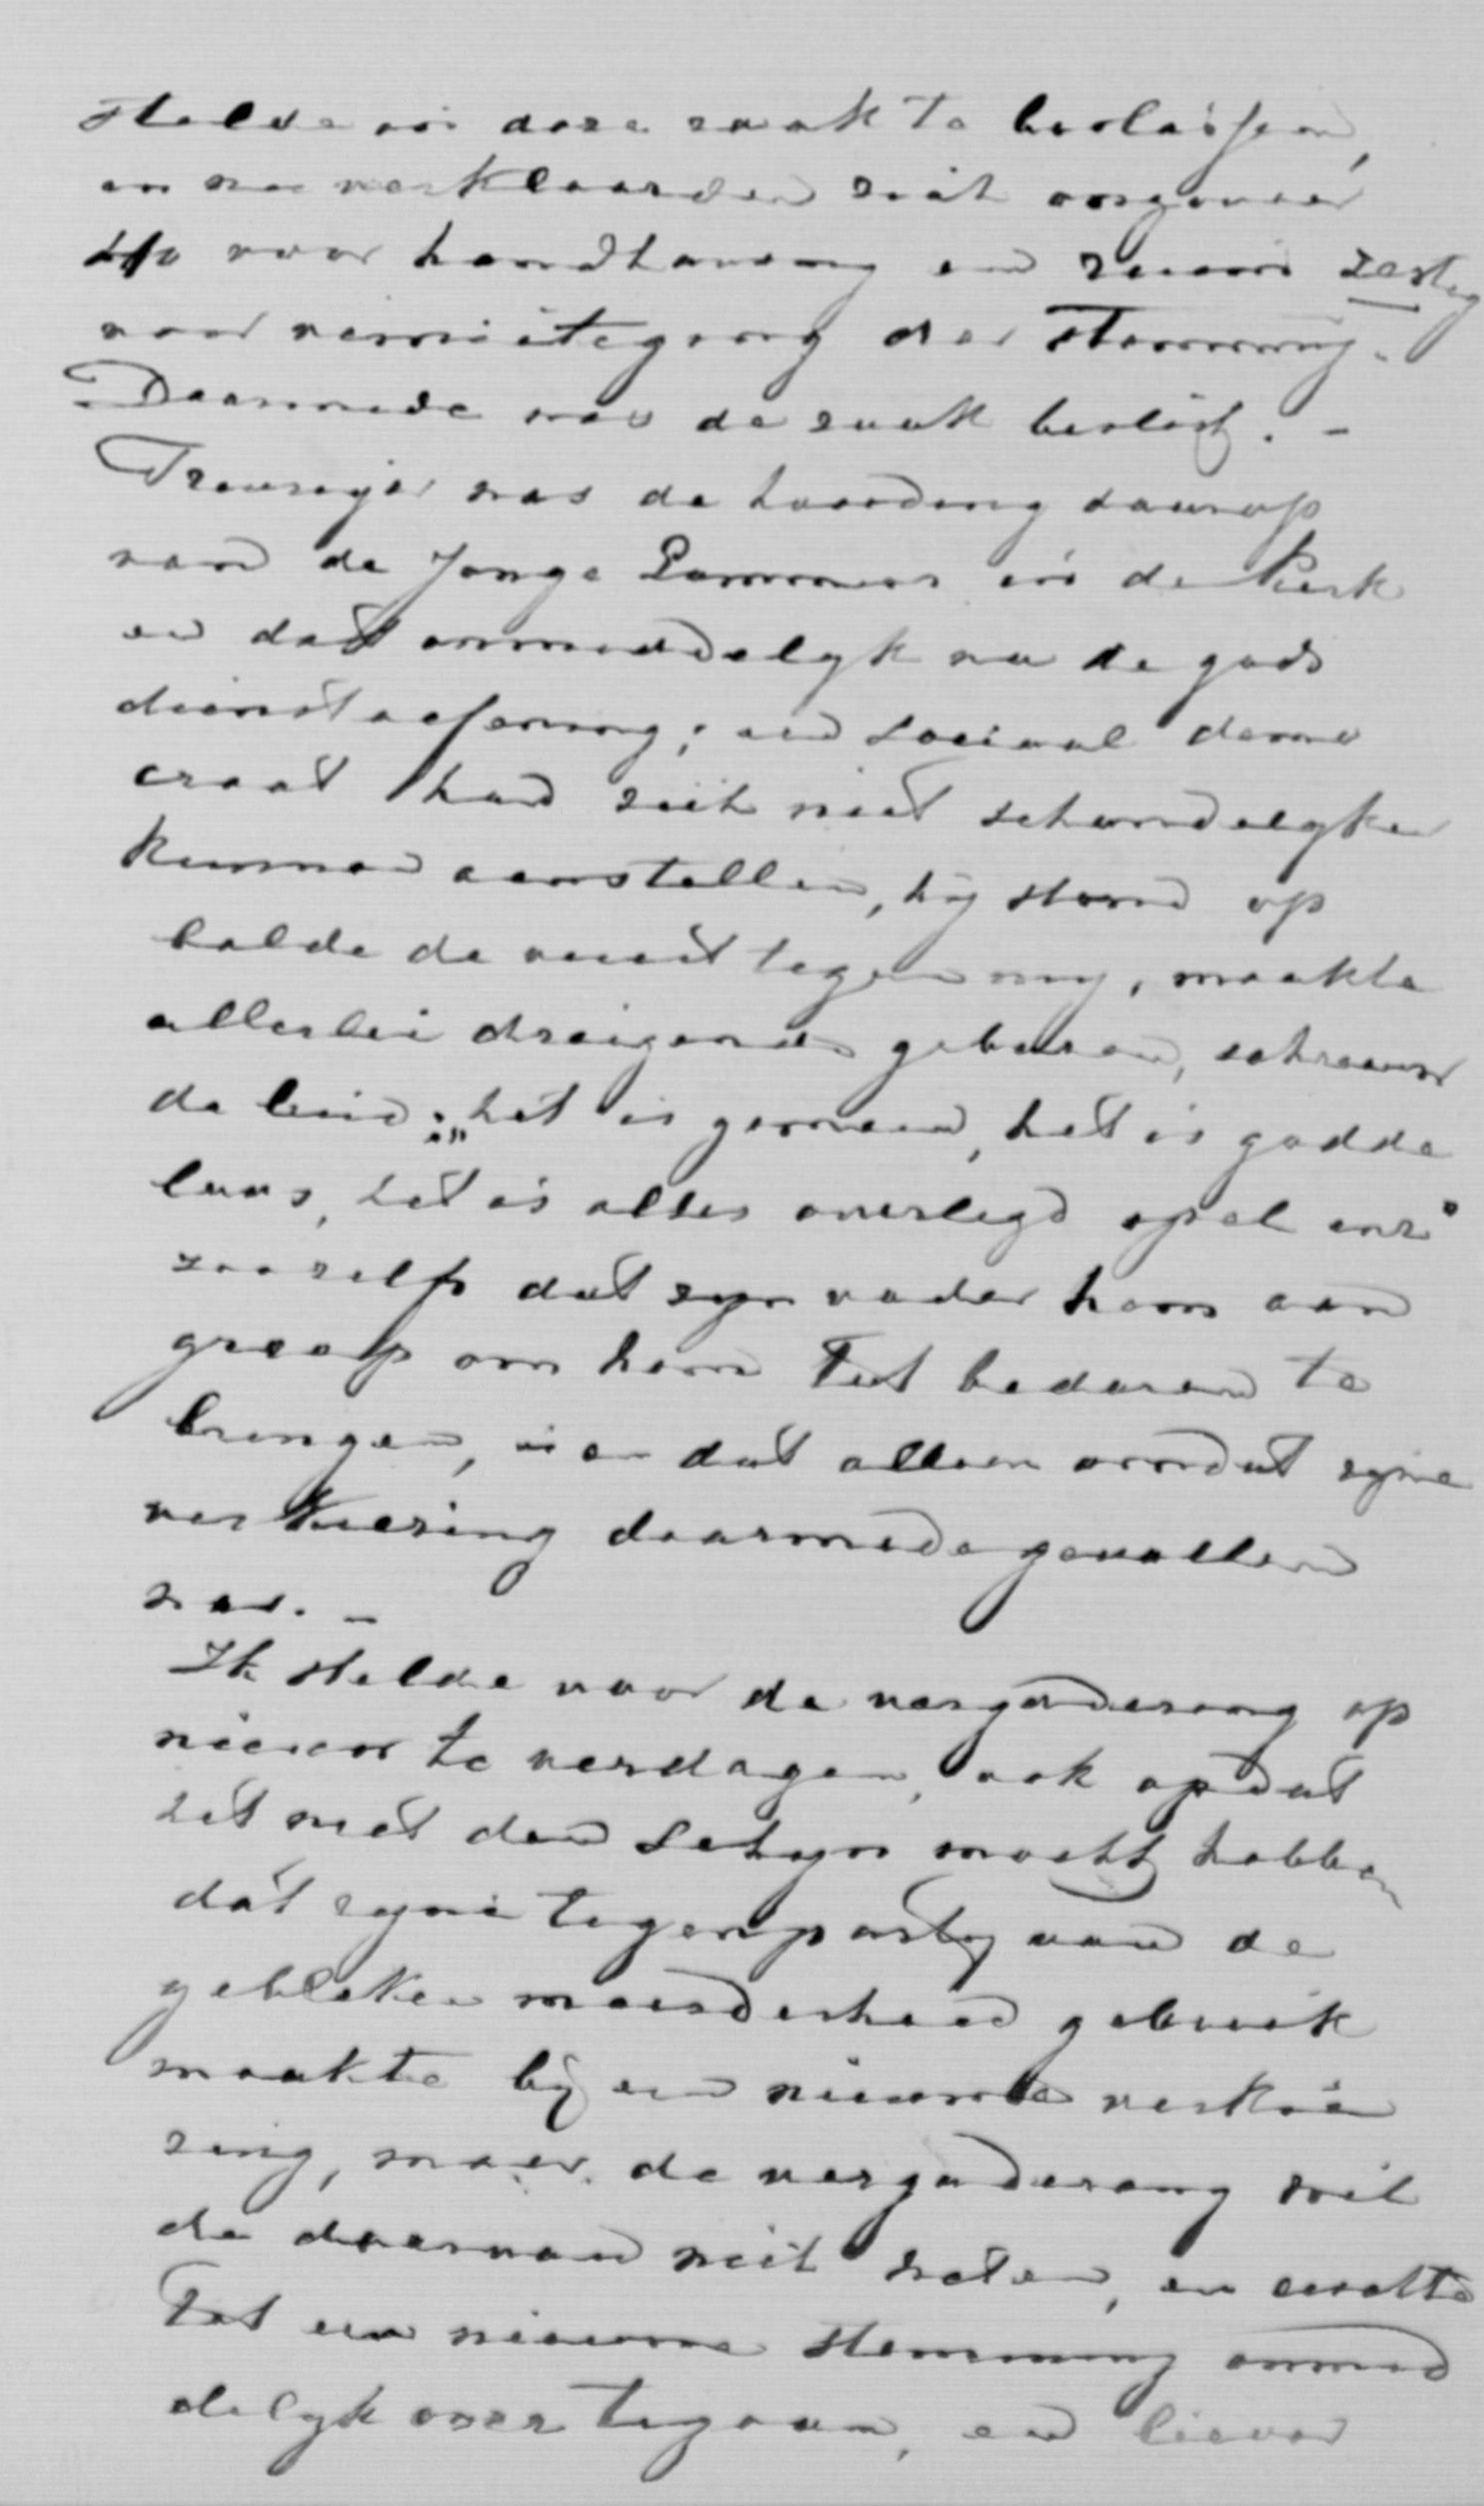 stelde in deze zaak te beslissen,
en nu verklaarden zich ongeveer
40 voor handhaving en ruim zestig
voor vernietiging der stemming.
Daarmede was de zaak beslist. -
Treuriger was de houding daarop
van de Jonge Pommer in de kerk
en dat onmiddelyk na de gods
dienstoefening; een sociaal demo
craat had zich niet schandelyker
kunnen aanstellen, hy stond op
balde de vuist tegen my, maakte
allerlei dreigende gebaren, schreeuw
de luid: "het is gemeen, het is godde
loos, het is alles overlegd spel enz"
zoo zelfs dat zyn vader hem aan
greep om hem tot bedaren te
brengen, en dat alleen omdat zyne
verkiezing daarmede gevallen
was. -
Ik stelde voor de vergadering op
nieuw te verdagen, ook opdat
het niet den schyn mocht hebben
dat zyne tegenparty van de
gebleken meerderheid gebruik
maakte by een nieuwe verkie
zing, maar de vergadering wil
de daarvan niet weten, en eischte
tot een nieuwe stemming onmid
delyk over te gaan, en liever